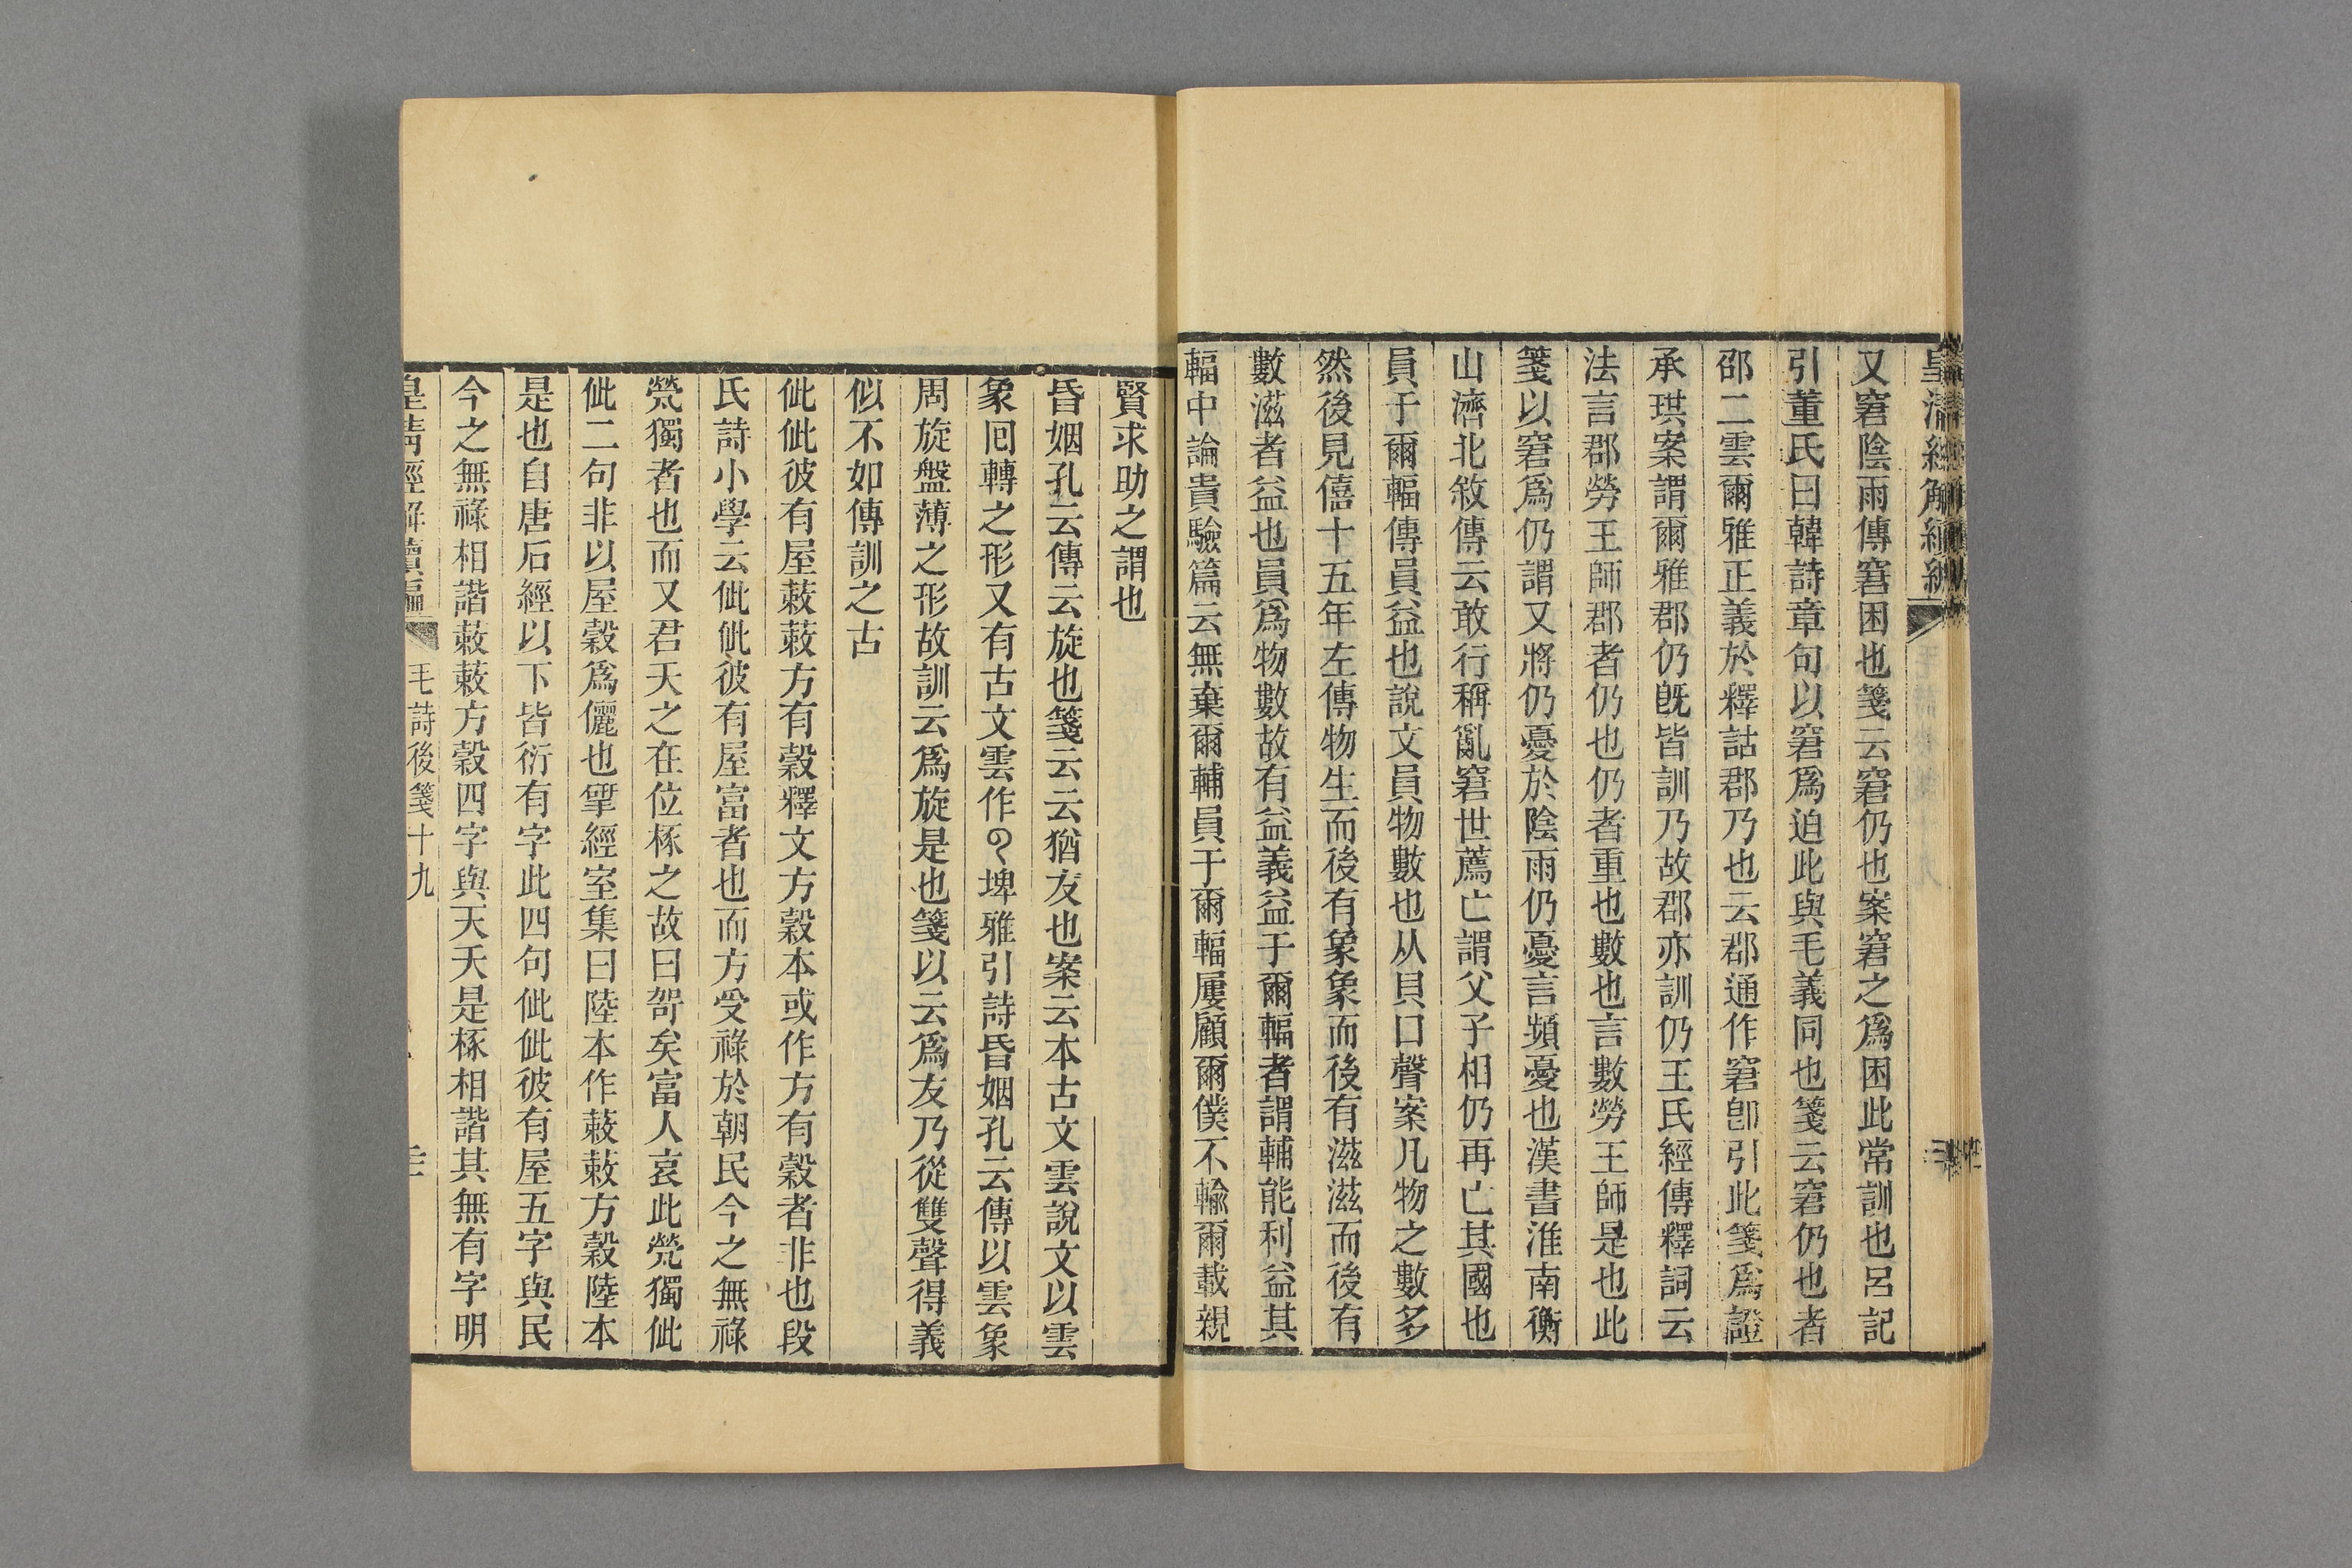 皇清經解續編
又窘陰雨傳窘困也箋云窘仍也案窘之爲困此常訓也呂記
引董氏曰韓詩章句以窘爲迫此與毛義同也箋云窘仍也者
邵二雲爾雅正義於釋詁郡乃也云郡通作窘卽引此箋爲證
承珙案謂爾雅郡仍旣皆訓乃故郡亦訓仍王氏經傳釋詞云
法言郡勞王師郡者仍也仍者重也數也言數勞王師是也此
箋以窘爲仍謂又將仍憂於陰雨仍憂言頻憂也漢書淮南衡
山濟北敘傳云敢行稱亂窘世薦亡謂父子相仍再亡其國也
員于爾輻傳員益也說文員物數也从貝口聲案凡物之數多
然後見僖十五年左傳物生而後有象象而後有滋滋而後有
數滋者益也員爲物數故有益義益于爾輻者謂輔能利益其
輻中論貴驗篇云無棄爾輔員于爾輻屢顧爾僕不輸爾載親
賢求助之謂也
昏姻孔云傳云旋也箋云云猶友也案云本古文雲說文以雲
象囘轉之形又有古文雲作埤雅引詩昏姻孔云傳以雲象
周旋盤薄之形故訓云爲旋是也箋以云爲友乃從雙聲得義
似不如傳訓之古
佌佌彼有屋蔌蔌方有穀釋文方穀本或作方有穀者非也段
氏詩小學云佌佌彼有屋富者也而方受祿於朝民今之無祿
煢獨者也而又君天之在位椓之故曰哿矣富人哀此煢獨佌
佌二句非以屋穀爲儷也揅經室集曰陸本作蔌蔌方穀陸本
是也自唐石經以下皆衍有字此四句佌佌彼有屋五字與民
今之無祿相諧蔌蔌方穀四字與天夭是椓相諧其無有字明
皇清經解續編
毛詩後箋十九